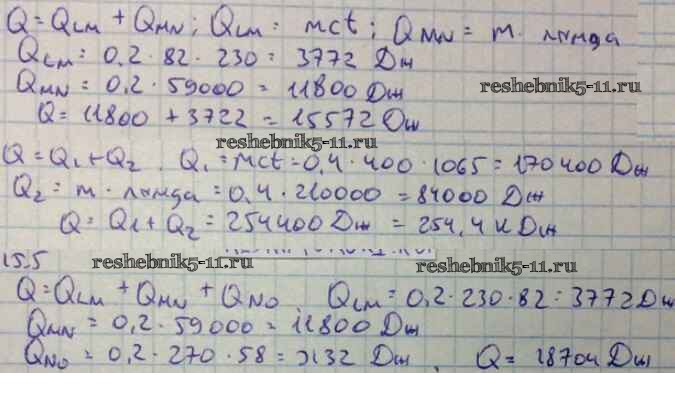 Q=QLM + QMN; QLM = mct; QMN = m· лямда
QLM = 0,2·82·230 = 3772 Дж
QMN = 0,2·59000 = 11800 Дж
reshebnik5-11.ru
Q = 11800 + 3722 = 15572 Дж
reshebnik5-11.ru
Q=Q1+Q2. Q1=mct=0,4·400·1065=170400 Дж
Q2 = m· лямда = 0,4·210000 = 84000 Дж
Q = Q1+Q2 = 254400 Дж = 254,4 кДж
15.5 reshebnik5-11.ru reshebnik5-11.ru
Q=QLM + QMN + QNO QLM=0,2·230·82=3772 Дж
QMN = 0,2·59000 = 11800 Дж
QNO = 0,2·270·58 = 3132 Дж. Q = 18704 Дж